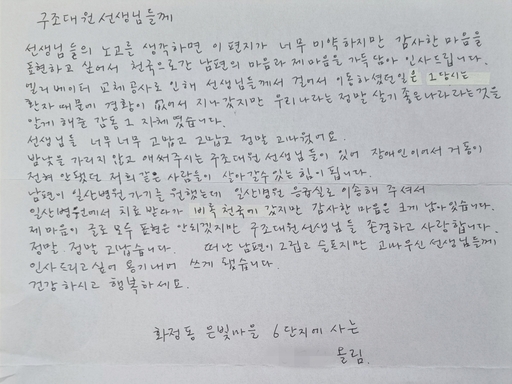 구조대원선생님들께
선생님들의 노고를 생각하면 이 편지가 너무 미약하지만 감사한 마음을
표현하고 싶어서 천국으로간 남편의 마음과 제마음을 가득 담아 인사드립니다.
엘리베이터 교체공사로 인해 선생님들께서 걸어서 이동하셨던일은 그당시는
환자 때문에 경황이 없어서 지나갔지만 우리나라는 정말 살기 좋은나라라는것을
알게해준 감동 그 자체였습니다.
선생님들 너무 너무 고맙고 고맙고 정말 고마웠어요.
밤낮을 가리지 않고 애써주시는 구조대원 선생님들이 있어 장애인이어서 거동이
전혀 안됐던 저희같은 사람들이 살아갈수있는 힘이 됩니다.
남편이 일산병원 가기를 원했는데 일산병원 응급실로 이송해 주셔서
일산병원에서 치료받다가 비록 천국에 갔지만 감사한 마음은 크게 남아있습니다.
제 마음이 글로 모두 표현은 안되겠지만 구조대원선생님을 존경하고 사랑합니다.
정말. 정말 고맙습니다. 떠난 남편이 그립고 슬프지만 고마우신 선생님들께
인사드리고 싶어 용기내어 쓰게 됐습니다.
건강하시고 행복하세요.
화정동 은빛마을 6단지에 사는
올림.